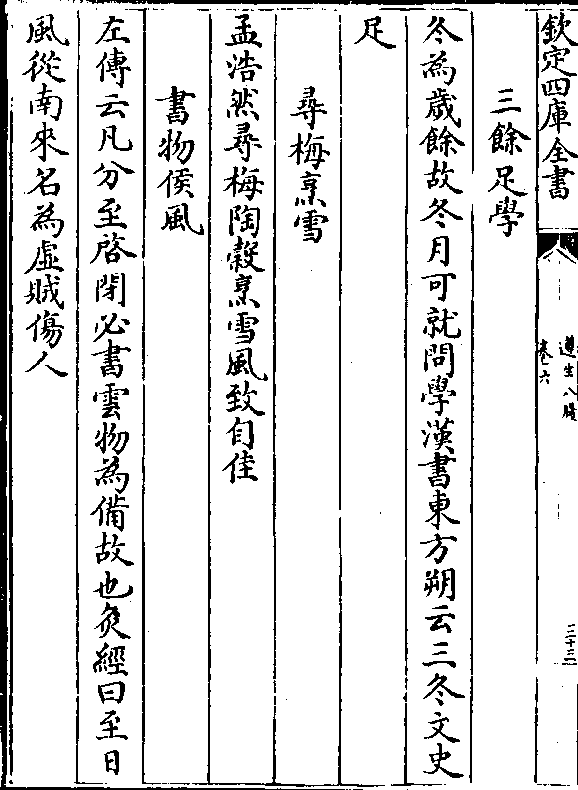 欽定四庫全書
遵生八牋
卷六
三十三
三餘足學
冬為歲餘故冬月可就問學漢書東方朔云三冬文史
足
尋梅烹雪
孟浩然尋梅陶穀烹雪風致自佳
書物侯風
左傳云凡分至啓閉必書雲物為備故也灸經曰至日
風從南來名為虛賊傷人